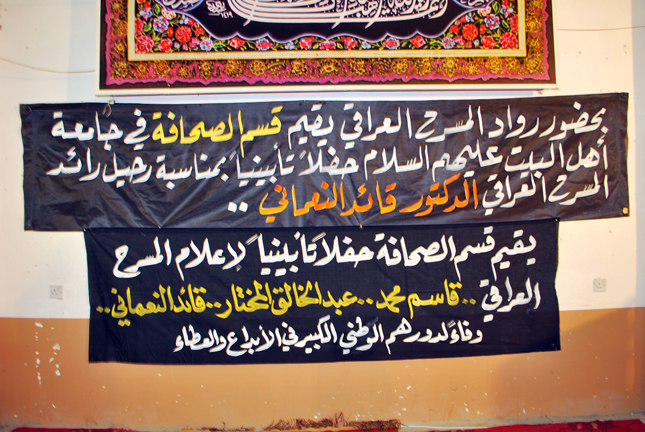 بحضور رواد المسرح العراقي يقيم قسم الصحافة في جامعة
أهل البيت عليهم السلام حفلاً تأبينياً بمناسبة رحيل رائد
المسرح العراقي الدكتور قائد النعماني ..
يقيم قسم الصحافة حفلاً تأبينياً لإعلام المسرح
العراقي .. قاسم محمد .. عبدالخالق المختار .. قائد النعماني ..
وفاءً لدورهم الوطني الكبير في الأبداع والعطاء